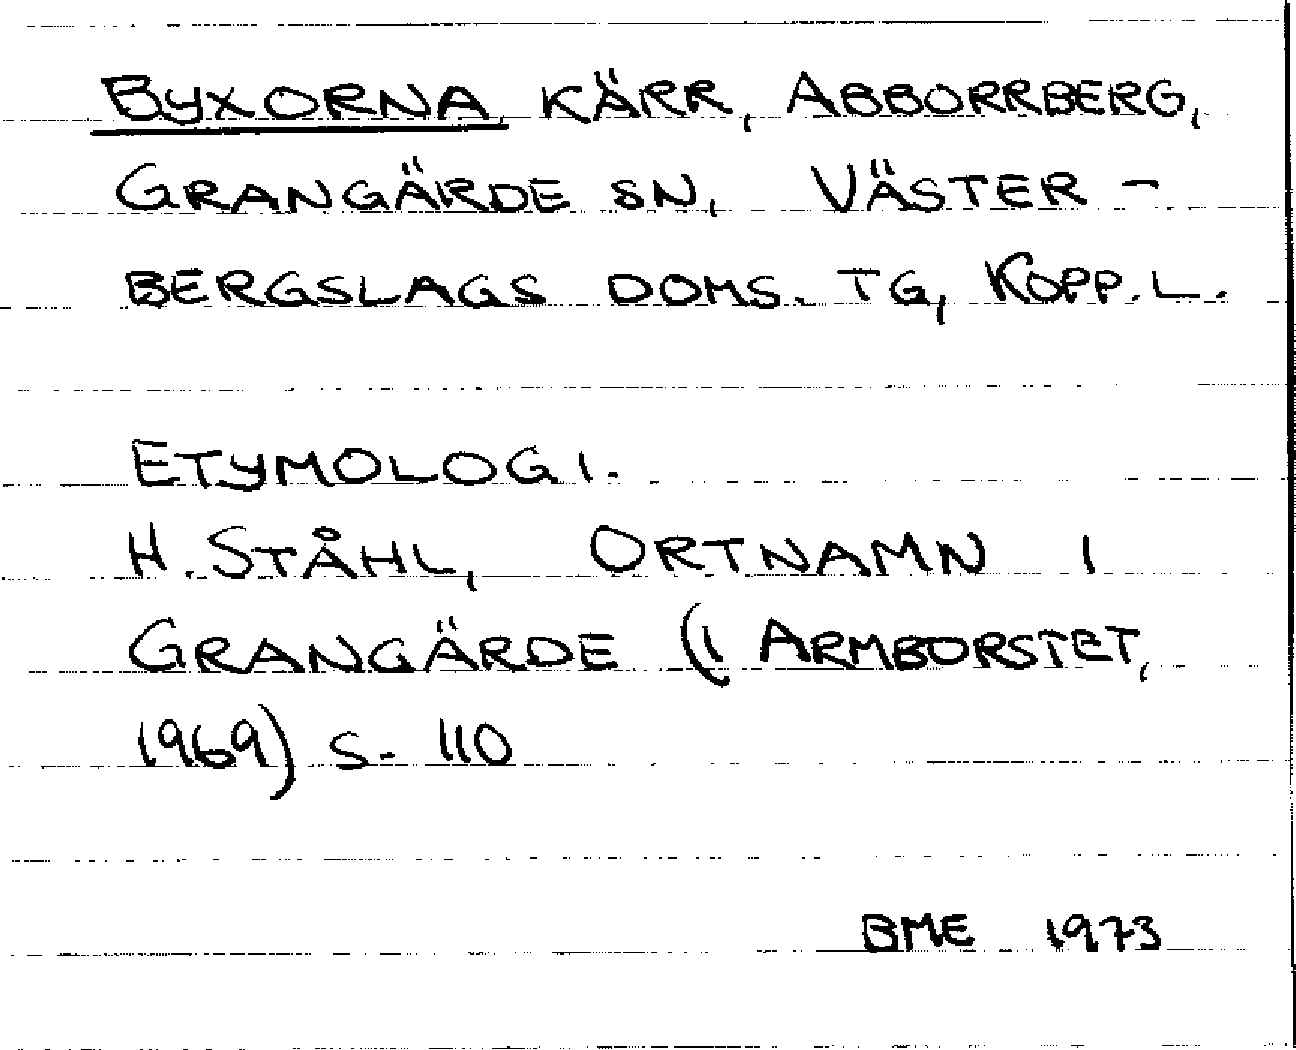 BYXORNA KÄRR, ABBORRBERG,
GRANGÄRDE SN, VÄSTER-
BERGSLAGS DOMS. TG, KOPP. L.
ETYMOLOGI.
H. STÅHL, ORTNAMN I
GRANGÄRDE (I ARMBORSTET,
1969) S. 110
BME 1973